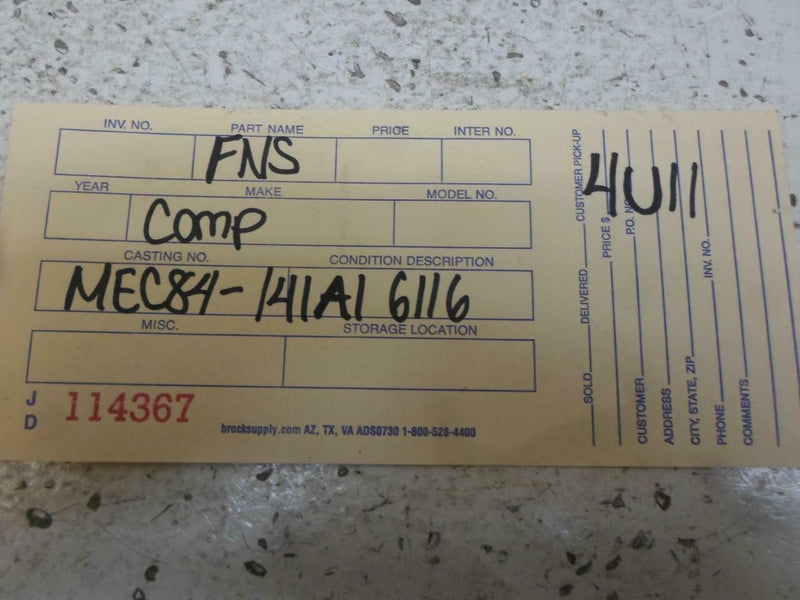 INV. NO. PART NAME PRICE INTER NO.
FNS
YEAR MAKE MODEL NO.
Comp
CASTING NO. CONDITION DESCRIPTION
MEC84-141A1 6116
MISC. STORAGE LOCATION
J D 114367
brocksupply.com AZ, TX, VA ADS0730 1-800-528-4400
4U11
SOLD DELIVERED CUSTOMER PICK-UP
PRICE $
CUSTOMER P.O. NO.
ADDRESS
CITY, STATE, ZIP
PHONE INV. NO.
COMMENTS